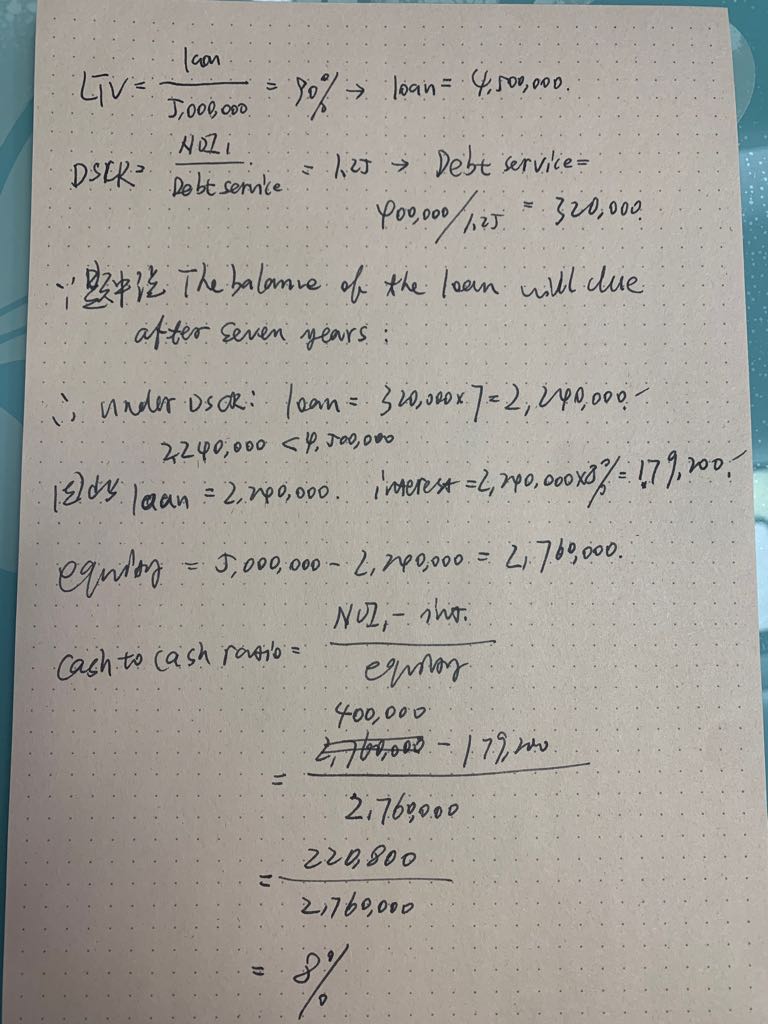 LTV = loan / 5,000,000 = 90% → loan = 4,500,000.
DSCR = NOI₁ / Debt service = 1.25 → Debt service =
400,000/1.25 = 320,000
∵ 题中说 The balance of the loan will due
after seven years :
∴ under DSCR: loan = 320,000×7 = 2,240,000.
2,240,000 < 4,500,000
因此 loan = 2,240,000. interest = 2,240,000×8% = 179,200.
equity = 5,000,000 - 2,240,000 = 2,760,000.
cash to cash ratio = NOI₁ - int. / equity
400,000
= 2,760,000 - 179,200 / 2,760,000
= 220,800 / 2,760,000
= 8%